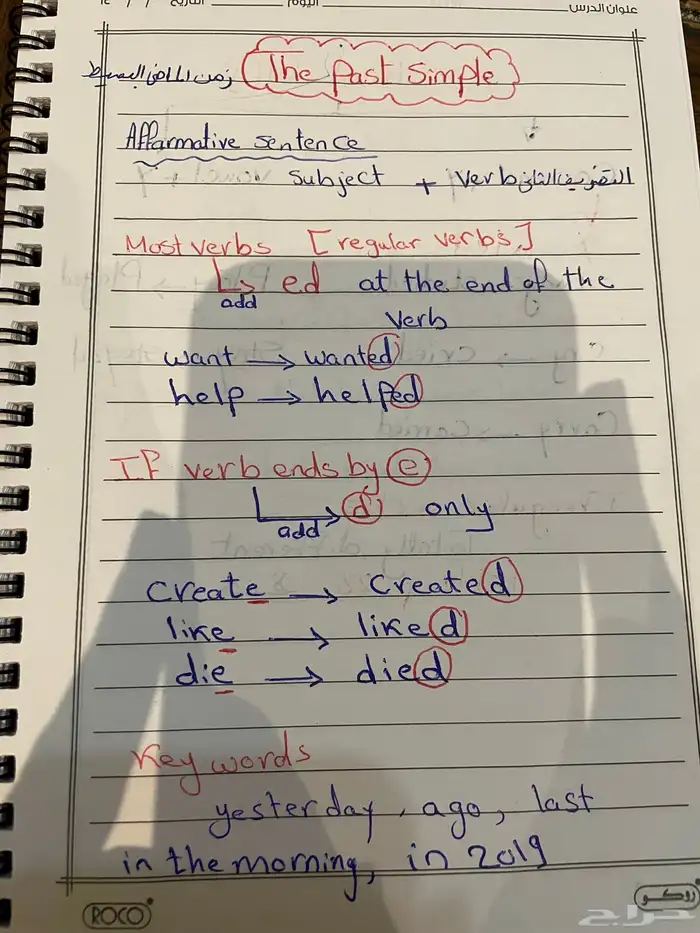 عنوان الدرس اليوم التاريخ / / ١٤
The Past Simple زمن الماضي البسيط
Affarmative sentence
subject + verb التصريف الثاني
Most verbs [regular verbs]
ed at the end of the
add
verb
want → wanted
help → helped
If verb ends by e
d only
add
create → created
like → liked
die → died
Key words
yesterday, ago, last
in the morning, in 2019
ROCO روكو
حراج